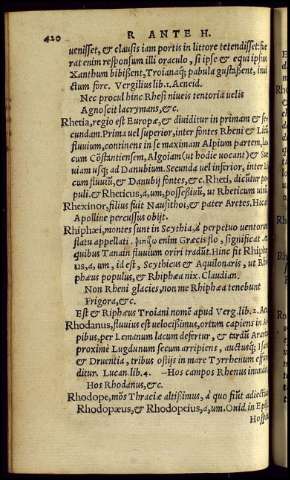 420 R ANTE H.
uenisset, & clausis iam portis in littore tetendisset: fue
rat enim responsum illi oraculo, si ipse & equi ipsius
Xanthum bibissent, Troianaq; pabula gustassent, inui
ctum fore. Vergilius lib. 1. Aeneid.
Nec procul hinc Rhesi niueis tentoria uelis
Agnoscit lacrymans, &c.
Rhetia, regio est Europæ, & diuiditur in primam & se
cundam. Prima uel superior, inter fontes Rheni & Licũ
fluuium, continens in se maximam Alpium partem, la
cum Cõstantiensem, Algoiam (ut hodie uocant) & Sue
uiam usq; ad Danubium. Secunda uel inferior, inter Li
cum fluuiũ, & Danubij fontes, &c. Rheti, dicũtur po
puli. & Rheticus, a, um, possessiuũ, ut Rheticum uinũ
Rhexinor, filius fuit Nausithoi, & pater Aretes. Hic ab
Apolline percussus obijt.
Rhiphæi, montes sunt in Scythia, à perpetuo uentorum
flatu appellati. ῥιπίζω enim Græcis flo, significat à
quibus Tanain fluuium oriri tradũt. Hinc fit Rhiphæ
us, a, um, id est, Scythicus & Aquilonaris, ut Rhi
phæus populus, & Rhiphæa nix. Claudian.
Non Rheni glacies, non me Rhiphæa tenebunt
Frigora, &c.
Est & Riphæus Troiani nomẽ apud Verg. lib. 2. Aen.
Rhodanus, fluuius est uelocissimus, ortum capiens in Al
pibus, per Lemanum lacum defertur, & tardũ Ararim
proximè Lugdunum secum arripiens, auctusq; Isara
& Druentia, tribus ostijs in mare Tyrrhenum effun
ditur. Lucan. lib. 4. —Hos campos Rhenus inundat
Hos Rhodanus, &c.
Rhodope, mõs Thraciæ altissimus, à quo fiũt adiectiua
Rhodopæus, & Rhodopeius, a, um. Ouid. in Epist.
Hospita